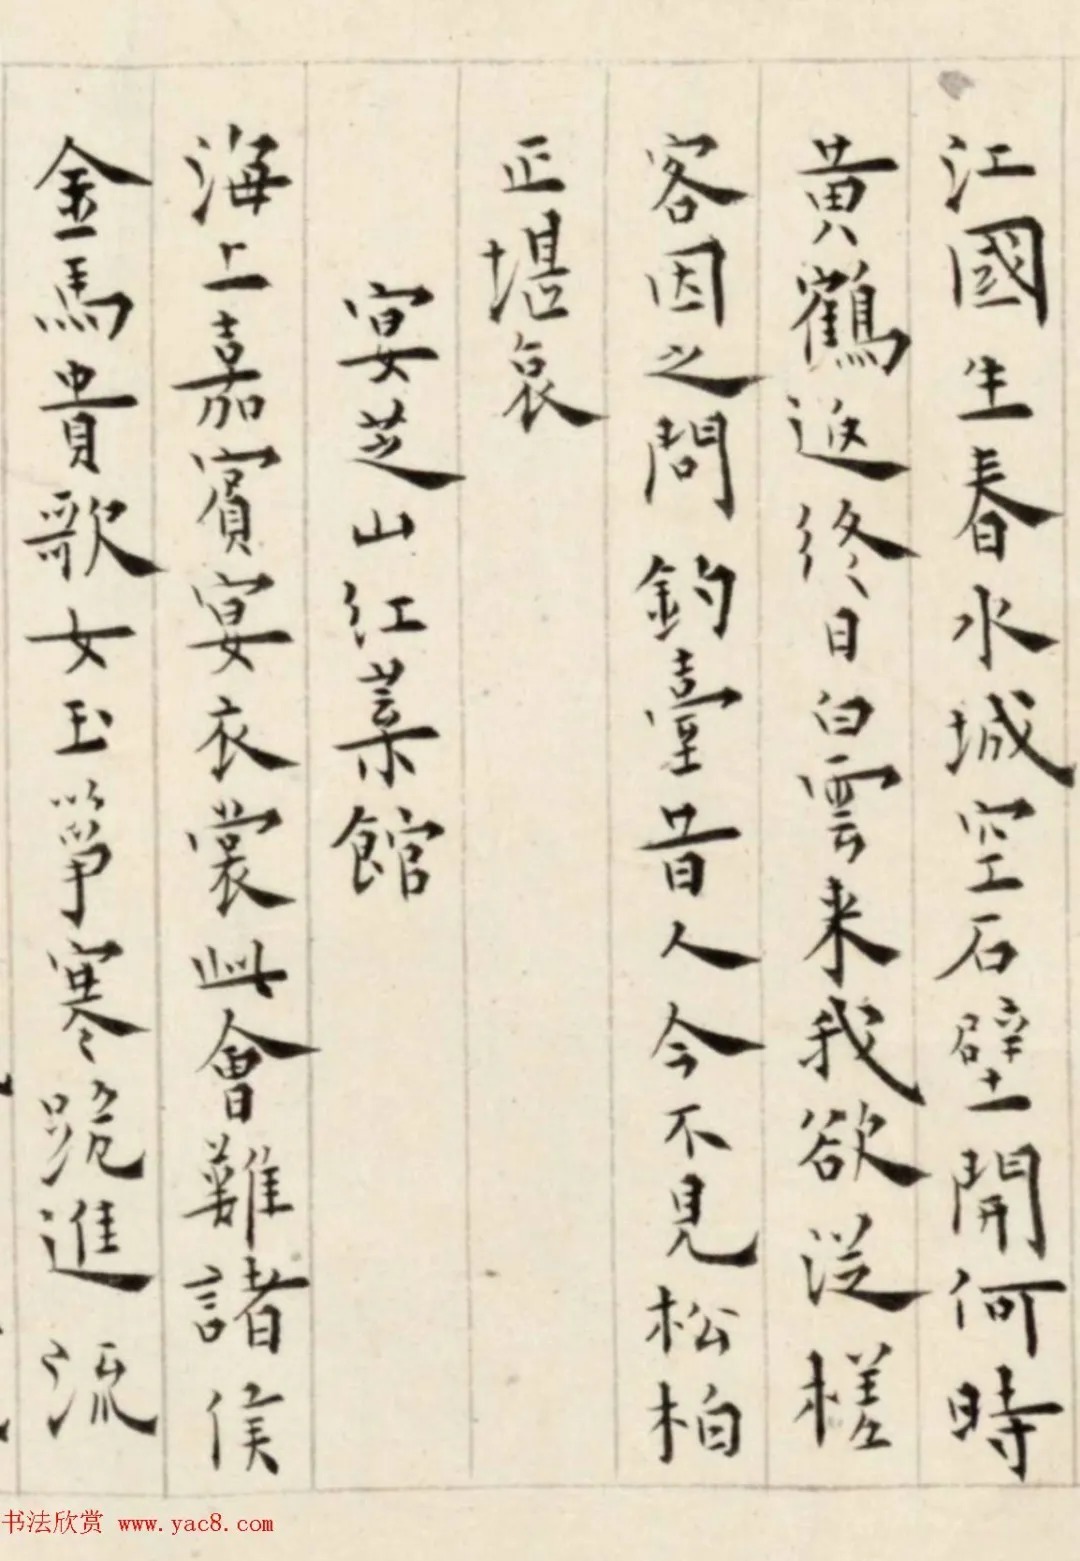 江國生春水城空石壁開何時
黄鶴返終日白雲来我欲従槎
客因之問釣臺昔人今不見松柏
正堪哀
宴芝山紅葉館
海上嘉賓宴衣裳此會難諸侯
金馬貴歌女玉箏寒跪進流
书法欣赏 www.yac8.com